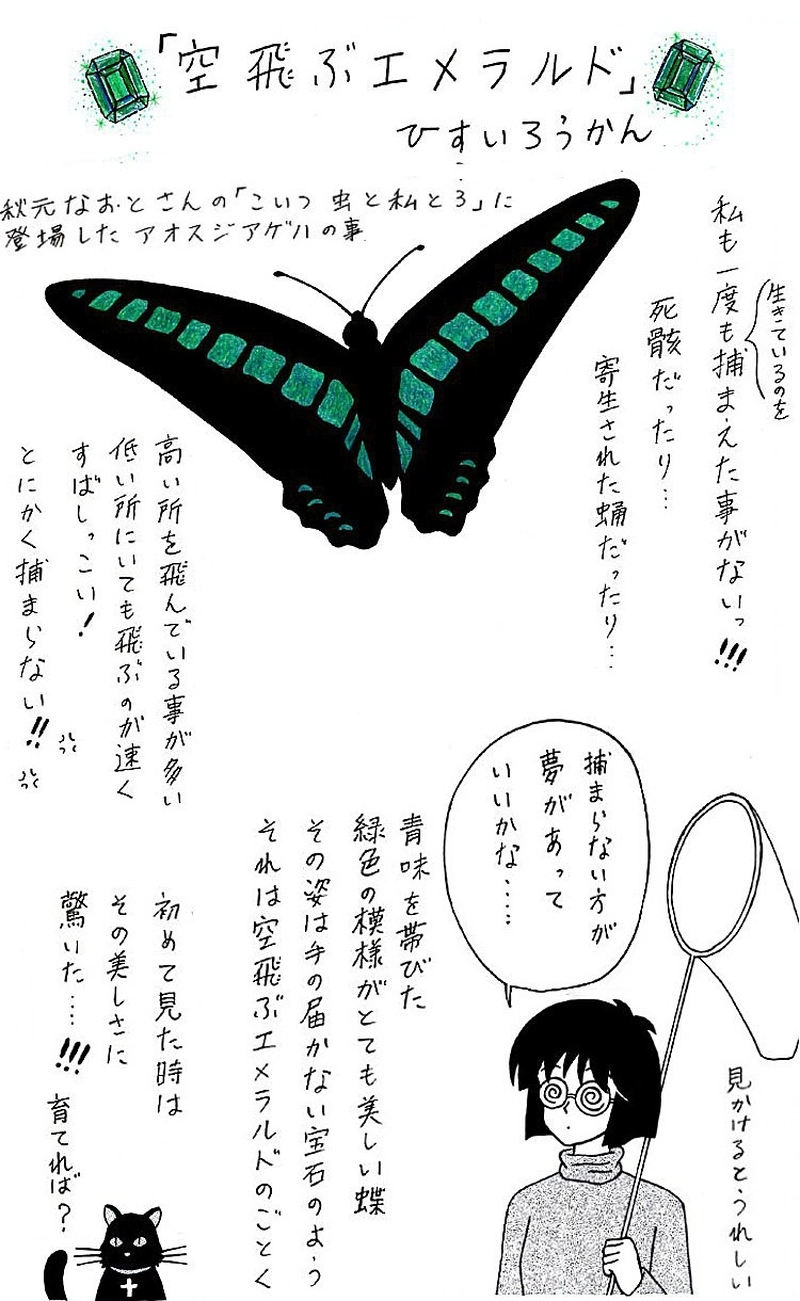 「空飛ぶエメラルド」
ひすいろうかん
秋元なおとさんの「こいつ 虫と私と3」に
登場したアオスジアゲハの事
私も一度も捕まえた事がないっ!!!
生きているのを
死骸だったり…
寄生された蛹だったり…
高い所を飛んでいる事が多い
低い所にいても飛ぶのが速く
すばしっこい!
とにかく捕まらない!!
捕まらない方が
夢があって
いいかな….
青味を帯びた
緑色の模様がとても美しい蝶
その姿は手の届かない宝石のよう
それは空飛ぶエメラルドのごとく
初めて見た時は
その美しさに
驚いた…!!!
育てれば?
見かけるとうれしい